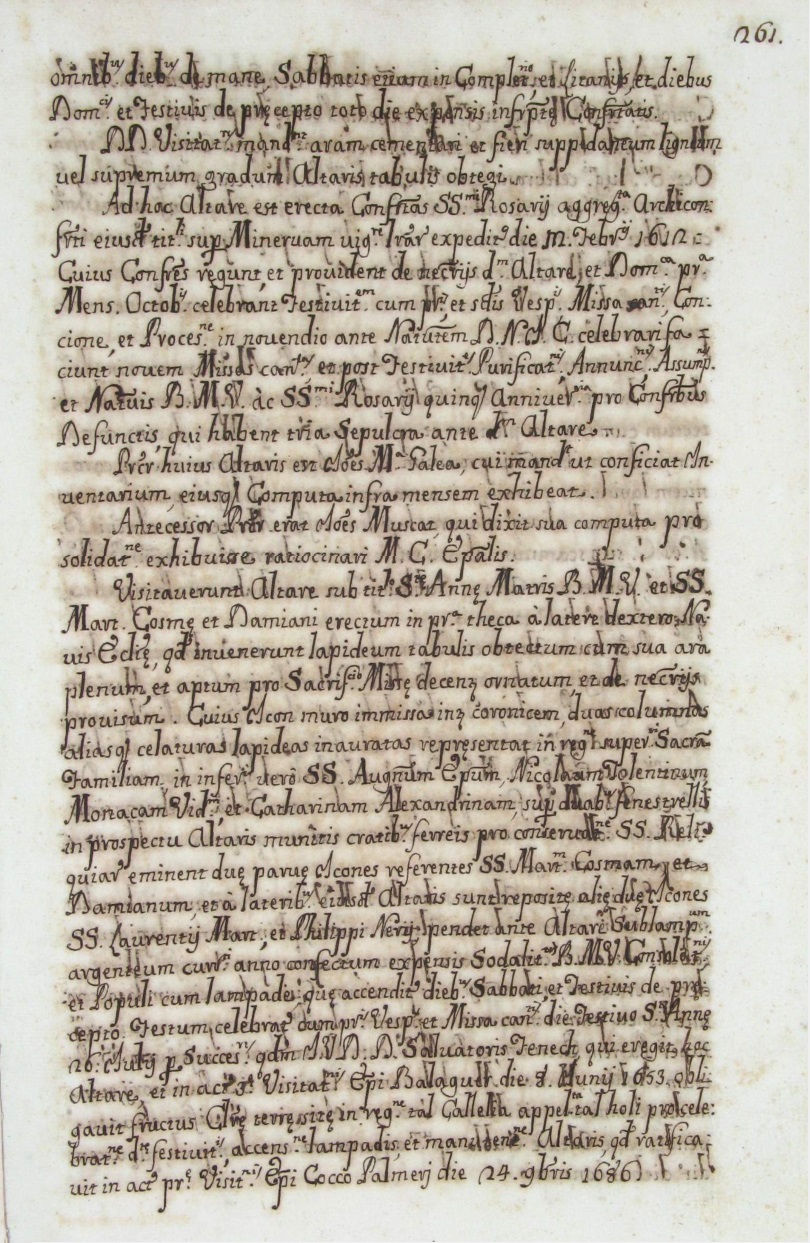 261.
omnib.ꝰ dieb.ꝰ de mane, Sabbatis etiam in Complet.rio et Litanijs, et diebus
Dom.cis et Festiuis de pręcepto toto die expensis infrptę Confrtatis.
DD. Visitat.res mand.nt aram cementari et fieri suppedaneum ligneum
uel supremum gradum Altaris tabulis obtegi.
Ad hoc Altare est erecta Confrtas SS.mi Rosarij aggreg.ta Archicon:
frti eiusd. tit.li sup. Mineruam uig.re lrar expedit. die 12. Febr.ij 1612:
Cuius Confres regunt, et prouident de necrijs d.m Altare, et Dom.ca pr.a
Mens. Octob.is celebrant Festiuit.em cum pr.is et sdis Vesp.is Missa can.ta, Con:
cione, et Proces.ne in nouendio ante Natutem D. N. J. C. celebrari fa:
ciunt nouem Missas can.tas et post Festiuit.es Purificat.nis, Annunc.nis, Assump.nis
et Natuis B. M. V. ac SS.mi Rosarij quinq. Anniuer.ria pro Confribus
Defunctis qui habent tria Sepulcra ante d.m Altare.
Prcr huius Altaris est Joes M.a Galea, cui mand.t ut conficiat In:
uentarium, eiusq. Computa infra mensem exhibeat.
Antecessor Prcr erat Joes Muscat, qui dixit sua computa pro
solidat.ne exhibuisse ratiocinari M. C. Epalis.
Visitauerunt Altare sub tit.lo S.tę Annę Matris B. M. V. et SS.
Mart. Cosmę et Damiani erectum in pr.a theca à latere dextero Na:
uis Eclię, qd inuenerunt lapideum tabulis obtectum cum sua ara
plenum, et aptum pro Sacrif.cio Missę decenr ornatum et de necrijs
prouisum. Cuius Icon muro immissa intr coronicem, duas columnas
aliasq. celaturas lapideas inauratas representat in reg.ne super.ri Sacrā
Familiam, in infer.ri uerò SS. Augnum Epum, Nicolaum Tolentinum,
Monacam Vid.m, et Catharinam Alexandrinam, sup. duab. fenestrellis
in prospectu Altaris munitis cratib. ferreis pro conseruat.ne SS. Reli:
quiar. eminent duę paruę Icones referentes SS. Mart. Cosmam, et
Damianum, et à laterib. eiusd. Altaris sunt repositę alię duę Icones
SS. Laurentij Mart., et Philippi Nerij pendet ante Altare Sublamp.um
argenteum curr.ti anno confectum expensis Sodalit.tis B. M. V. Consolat.nis,
et Populi cum lampade, quę accendit. dieb. Sabbati, et Festiuis de prę:
cepto. Festum celebrat. cum pr.is Vesp.is et Missa can.ta die Festiuo S.tę Annę
26. Julij p. Succes. qdm J. V. D. D. Saluatoris Fenech, qui eregit hoc
Altare, et in act. s. Visitat.nis Epi Balaguer die 8. Junij 1653. obli:
gauit fructus Clrę terrę sitę in reg.ne tal Callella appel.ta tal holi pro cele:
brat.ne d.ę festiuit.is, accens.ne lampadis, et manuten.ne Altaris qd ratifica:
uit in act. pr.ę Visit.nis Epi Cocco Palmerj die 24. 9bris 1686